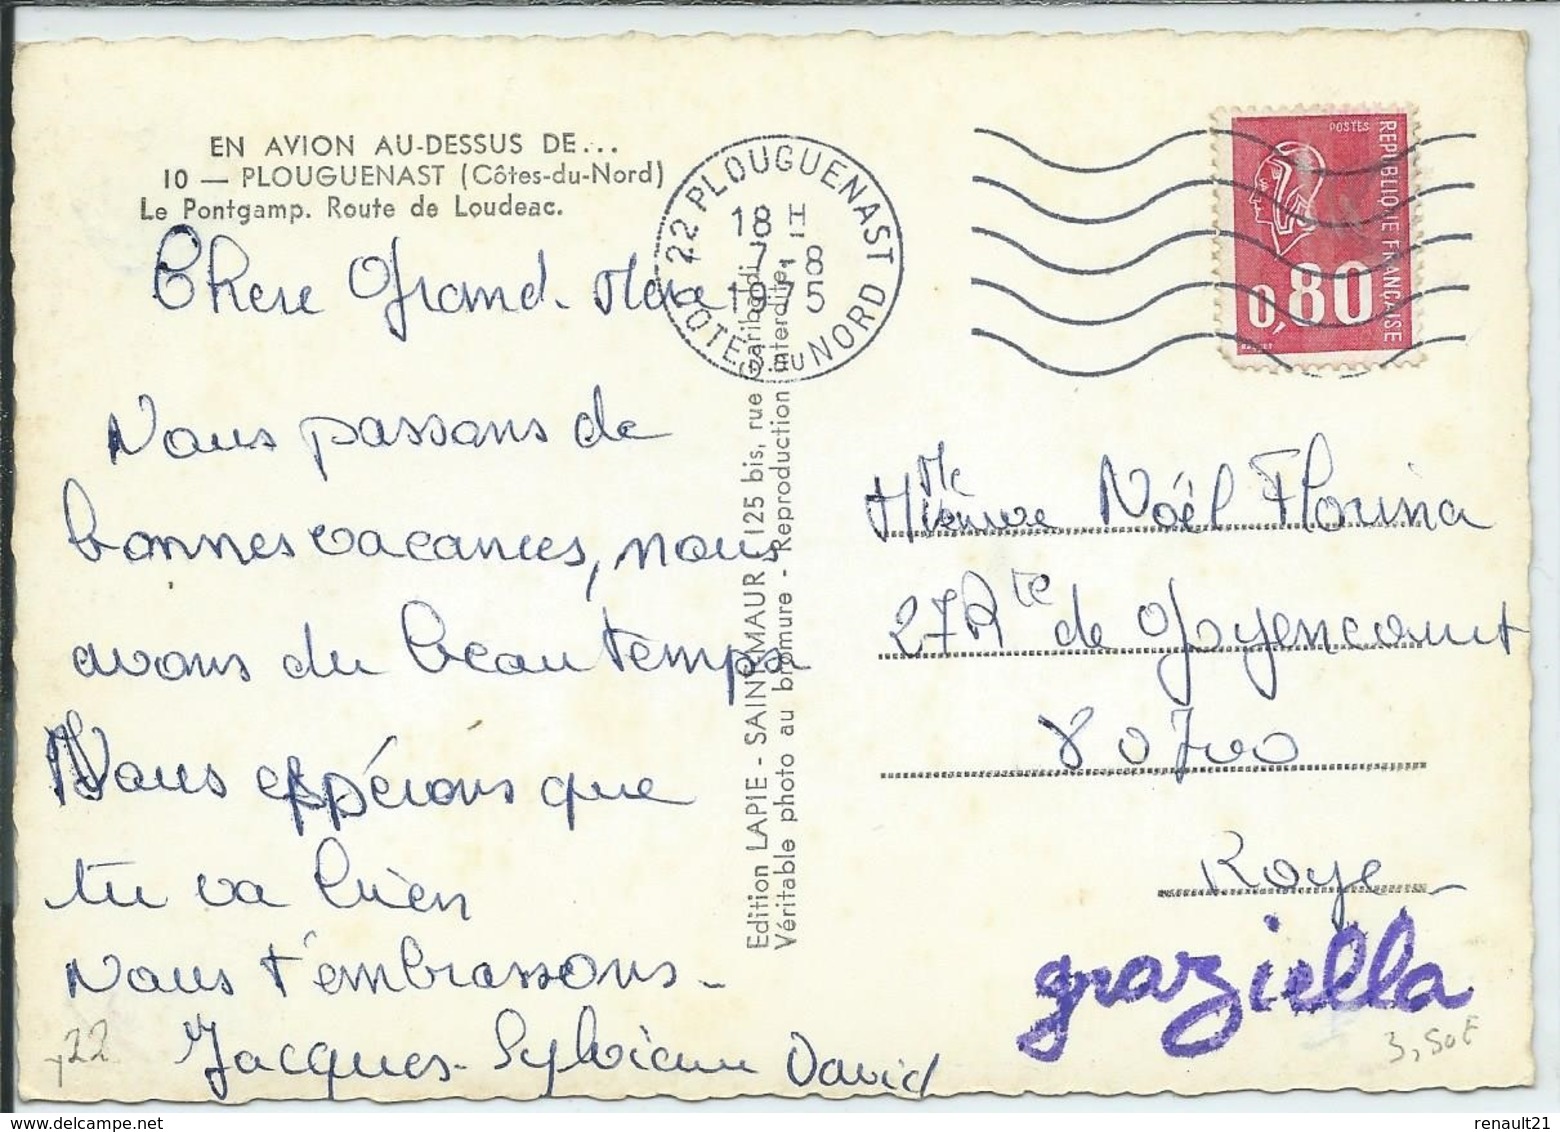 EN AVION AU-DESSUS DE...
10 — PLOUGUENAST (Côtes-du-Nord)
Le Pontgamp. Route de Loudeac.
22 PLOUGUENAST
18 H
7 - 8
1975
COTES DU NORD
POSTES
REPUBLIQUE FRANÇAISE
0,80
Chere Grand-Mere
Nous passons de
bonnes vacances, nous
avons du beau temps
Nous espérons que
tu va bien
Nous t'embrassons -
Jacques - Sylviane David
Edition LAPIE - SAINT-MAUR, 125 bis, rue Garibaldi
Véritable photo au bromure - Reproduction interdite.
Mme Noël Florina
27 Rte de Goyencourt
80700
Roye -
graziella
22
3,50F
renault21